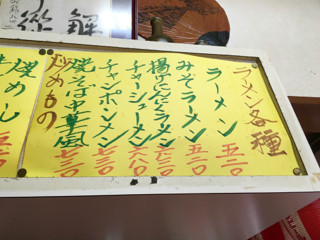 ラーメン各種
ラーメン 五二〇
みそラーメン 五二〇
揚げにんにくラーメン 六三〇
チャーシューメン 六八〇
チャンポンメン 七三〇
焼そば中華風 七三〇
炒めもの